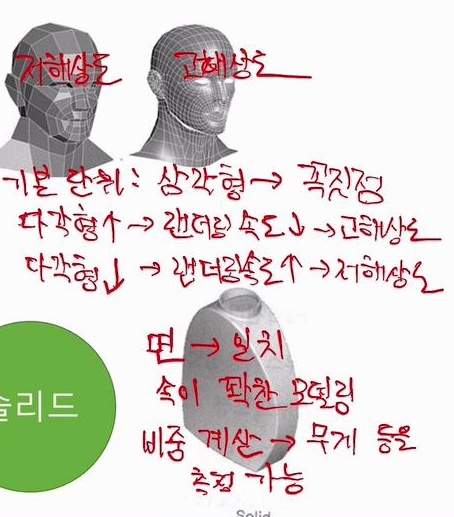 저해상도 고해상도
기본 단위: 삼각형 → 꼭짓점
다각형↑ → 랜더링 속도↓ → 고해상도
다각형↓ → 랜더링속도↑ → 저해상도
면 → 일치
솔리드
속이 꽉찬 모델링
비중 계산 → 무게 등을
측정 가능
Solid